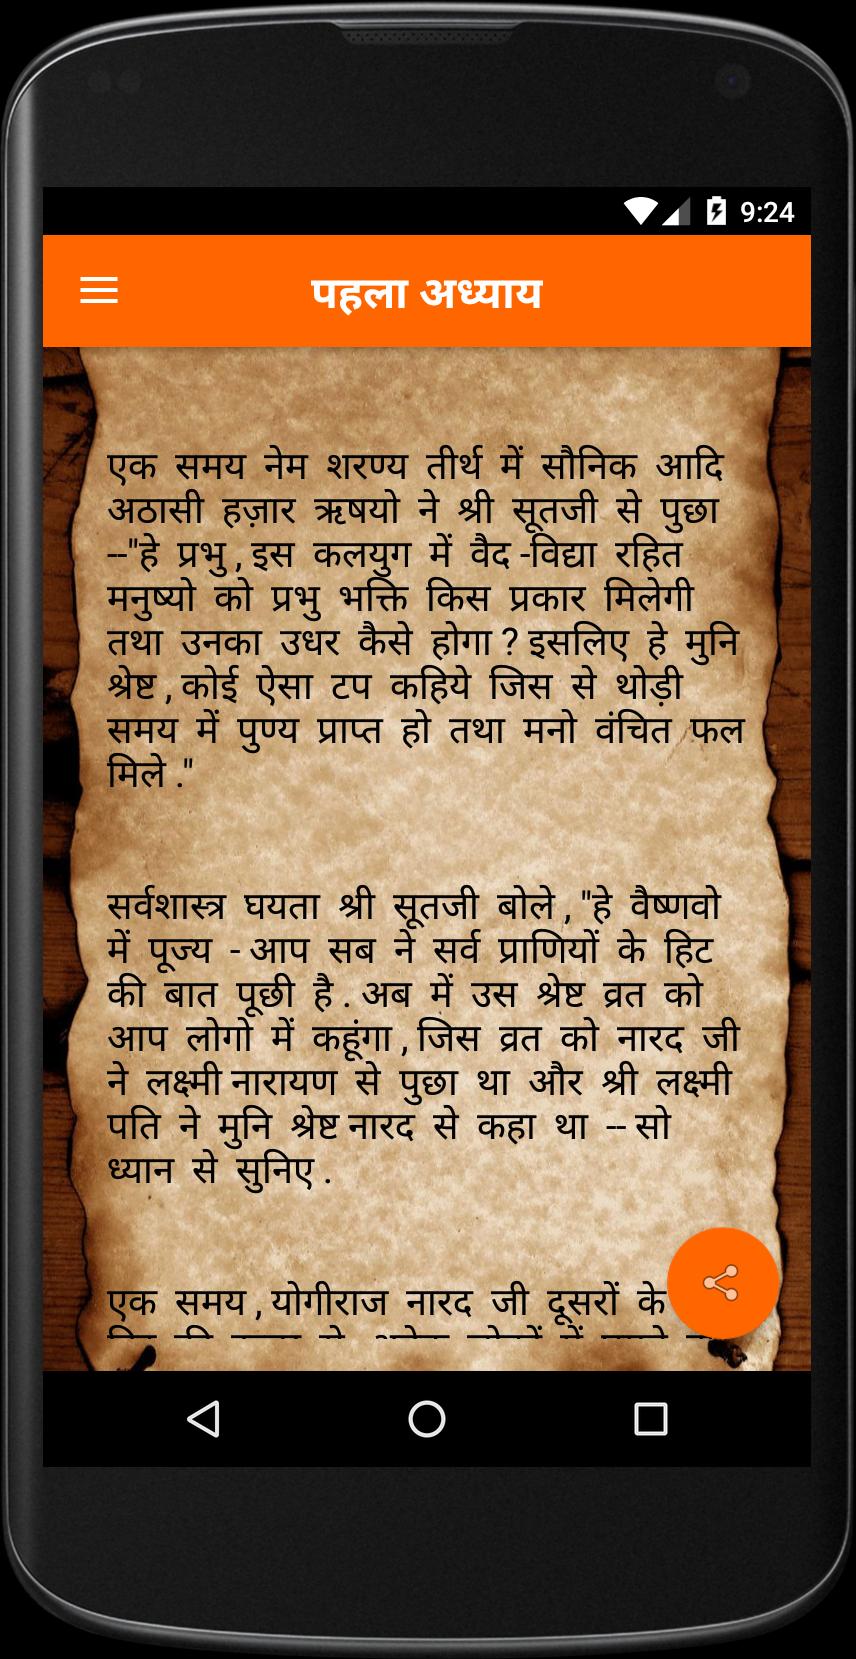 9:24
पहला अध्याय
एक समय नेम शरण्य तीर्थ में सौनिक आदि
अठासी हज़ार ऋषयो ने श्री सूतजी से पुछा
--"हे प्रभु , इस कलयुग में वैद -विद्या रहित
मनुष्यो को प्रभु भक्ति किस प्रकार मिलेगी
तथा उनका उधर कैसे होगा ? इसलिए हे मुनि
श्रेष्ट , कोई ऐसा टप कहिये जिस से थोड़ी
समय में पुण्य प्राप्त हो तथा मनो वंचित फल
मिले ."
सर्वशास्त्र घयता श्री सूतजी बोले , "हे वैष्णवो
में पूज्य - आप सब ने सर्व प्राणियों के हिट
की बात पूछी है . अब में उस श्रेष्ट व्रत को
आप लोगो में कहूंगा , जिस व्रत को नारद जी
ने लक्ष्मी नारायण से पुछा था और श्री लक्ष्मी
पति ने मुनि श्रेष्ट नारद से कहा था -- सो
ध्यान से सुनिए .
एक समय , योगीराज नारद जी दूसरों के